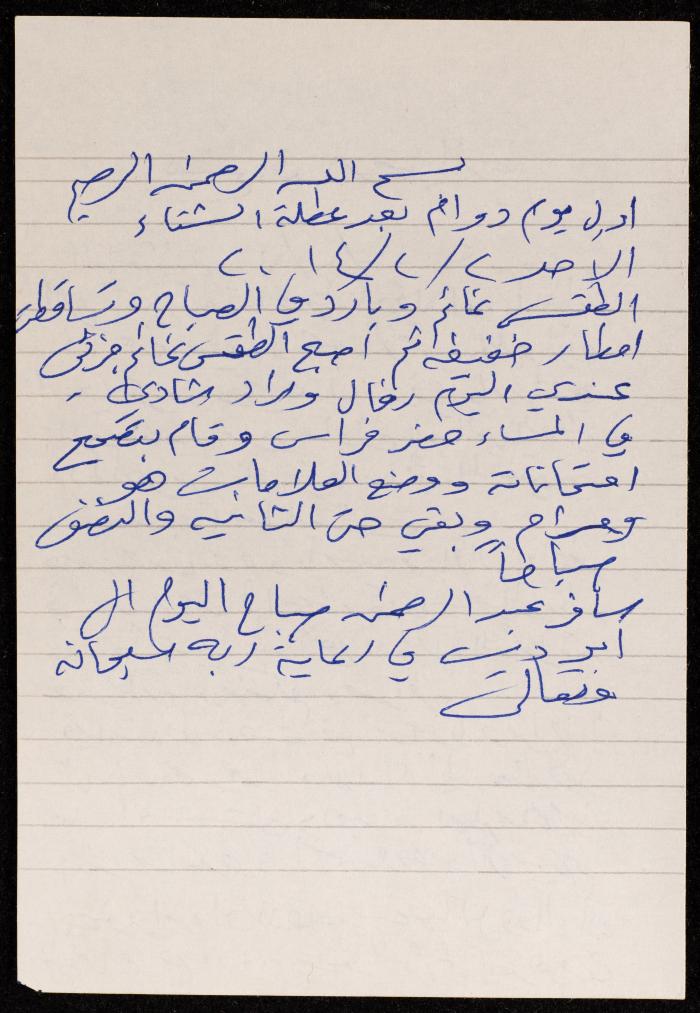 بسم الله الرحمن الرحيم
اول يوم دوام بعد عطلة الشتاء
الاحد ٢/٢/٢٠١٤
الطقس غائم وبارد في الصباح وتساقطت
امطار خفيفة ثم اصبح الطقس غائم جزئي
عندي اليوم رفال وراد
في المساء حضر فراس وقام بتصحيح
امتحاناته ووضع العلامات هو
ومرام وبقي حتى الثانيه والنصف
صباحاً
سافر عبد الرحمن صباح اليوم الى
ابو في رعاية ربه سبحانه
وتعالى